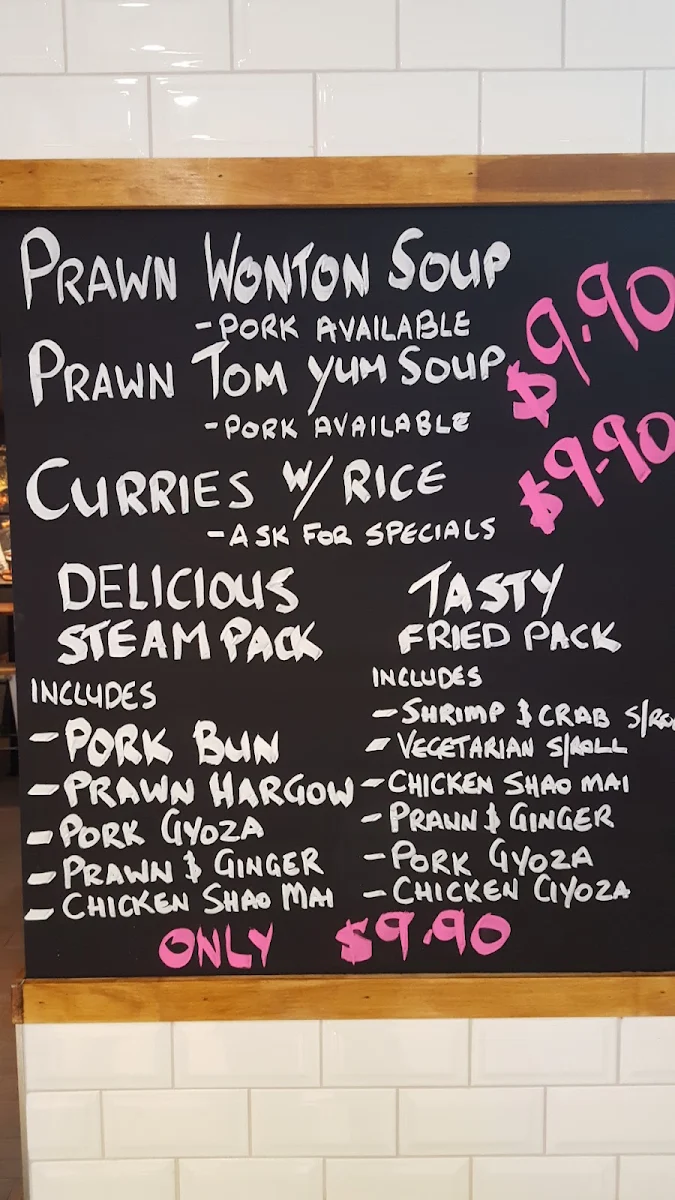 PRAWN WONTON SOUP
-PORK AVAILABLE
$9.90
PRAWN TOM YUM SOUP
-PORK AVAILABLE
$9.90
CURRIES W/ RICE
-ASK FOR SPECIALS
DELICIOUS
STEAM PACK
INCLUDES
-PORK BUN
-PRAWN HARGOW
-PORK GYOZA
-PRAWN & GINGER
-CHICKEN SHAO MAI
TASTY
FRIED PACK
INCLUDES
-SHRIMP & CRAB
-VEGETARIAN S/ROLL
-CHICKEN SHAO MAI
-PRAWN & GINGER
-PORK GYOZA
-CHICKEN GYOZA
ONLY $9.90